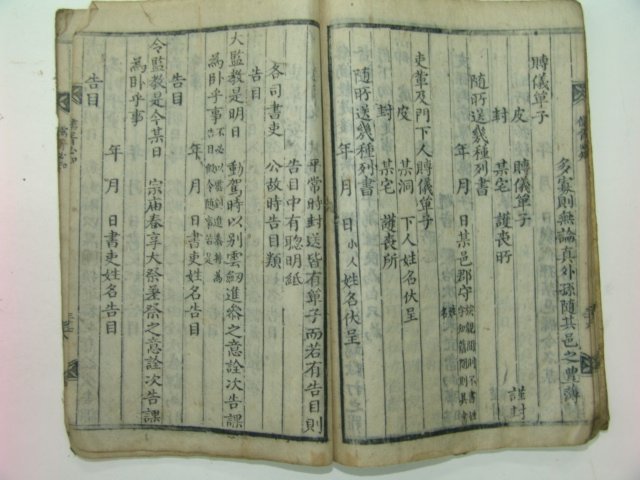 多寡則無論真外孫隨其邑之豊薄
賻儀單子
皮 賻儀單子 謹封
封 某宅 護喪所
隨所送幾種列書
年 月 日某邑郡守
吏輩及門下人賻儀單子
皮 某洞 下人姓名伏呈
封 某宅 護喪所
隨所送幾種列書
年 月 日小人姓名伏呈
平常時封送皆有單子而若有告目則
告目中有聰明紙
各司書吏 公故時告目類
告目
大監教是明日 動駕時以別雲劒進參之意詮次告課
為臥乎事
年 月 日書吏姓名告目
告目
令監教是今某日 宗庙春享大祭差祭之意詮次告課
為臥乎事
年 月 日書吏姓名告目
告目